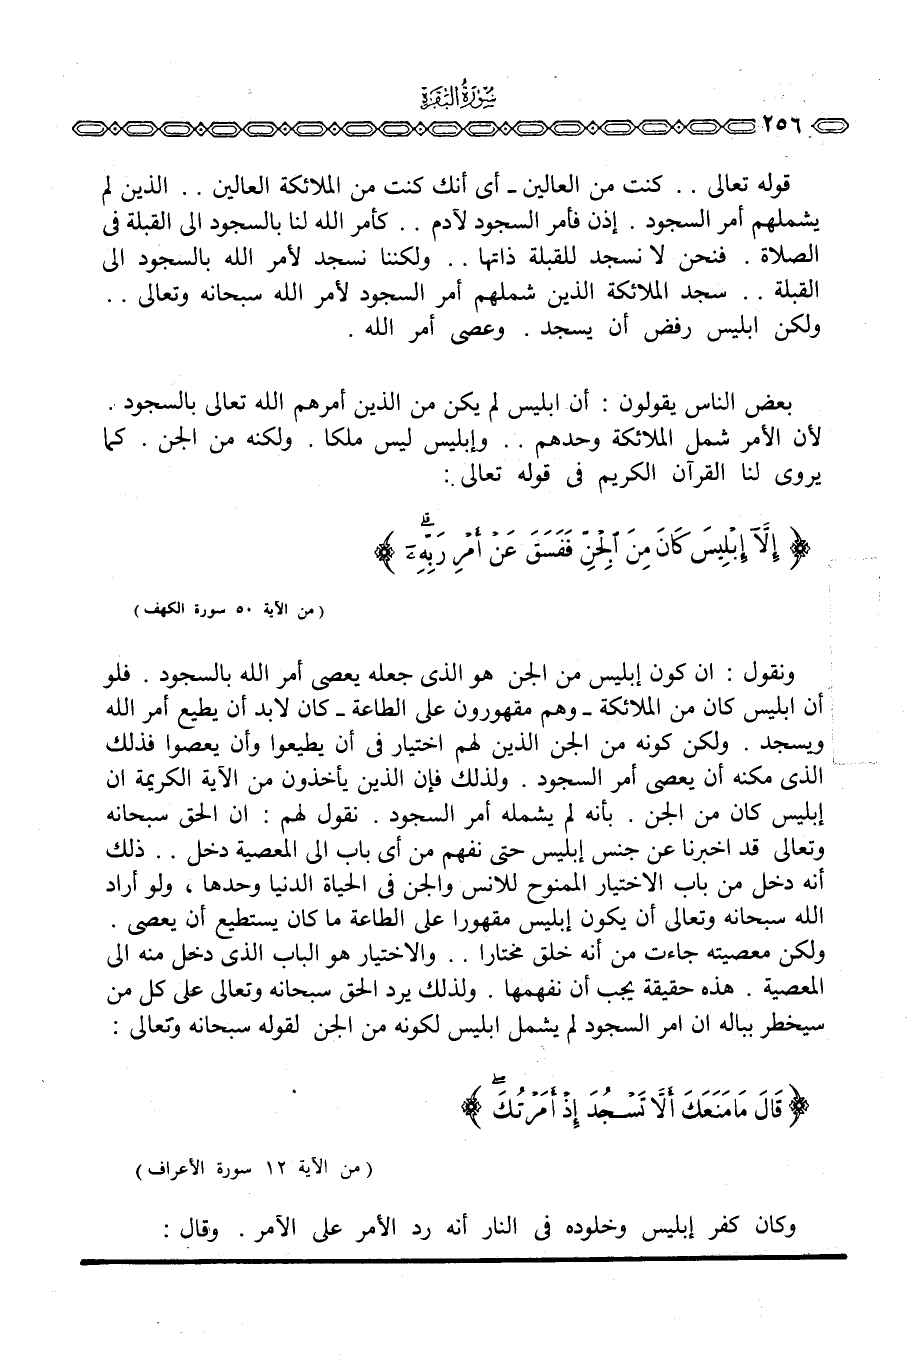 سورة البقرة
٢٥٦
قوله تعالى . . كنت من العالين ـ أى أنك كنت من الملائكة العالين . . الذين لم
يشملهم أمر السجود . إذن فأمر السجود لآدم . . كأمر الله لنا بالسجود الى القبلة فى
الصلاة . فنحن لا نسجد للقبلة ذاتها . . ولكننا نسجد لأمر الله بالسجود الى
القبلة . . سجد الملائكة الذين شملهم أمر السجود لأمر الله سبحانه وتعالى . .
ولكن ابليس رفض أن يسجد . وعصى أمر الله .
بعض الناس يقولون : أن ابليس لم يكن من الذين أمرهم الله تعالى بالسجود .
لأن الأمر شمل الملائكة وحدهم . . وإبليس ليس ملكا . ولكنه من الجن . كما
يروى لنا القرآن الكريم فى قوله تعالى :
﴿ إِلَّآ إِبْلِيسَ كَانَ مِنَ ٱلْجِنِّ فَفَسَقَ عَنْ أَمْرِ رَبِّهِۦٓ ۗ ﴾
( من الآية ٥٠ سورة الكهف )
ونقول : ان كون إبليس من الجن هو الذى جعله يعصى أمر الله بالسجود . فلو
أن ابليس كان من الملائكة ـ وهم مقهورون على الطاعة ـ كان لابد أن يطيع أمر الله
ويسجد . ولكن كونه من الجن الذين لهم اختيار فى أن يطيعوا وأن يعصوا فذلك
الذى مكنه أن يعصى أمر السجود . ولذلك فإن الذين يأخذون من الآية الكريمة ان
إبليس كان من الجن . بأنه لم يشمله أمر السجود . نقول لهم : ان الحق سبحانه
وتعالى قد اخبرنا عن جنس إبليس حتى نفهم من أى باب الى المعصية دخل . . ذلك
أنه دخل من باب الاختيار الممنوح للانس والجن فى الحياة الدنيا وحدها ، ولو أراد
الله سبحانه وتعالى أن يكون إبليس مقهورا على الطاعة ما كان يستطيع أن يعصى .
ولكن معصيته جاءت من أنه خلق مختارا . . والاختيار هو الباب الذى دخل منه الى
المعصية . هذه حقيقة يجب أن نفهمها . ولذلك يرد الحق سبحانه وتعالى على كل من
سيخطر بباله ان امر السجود لم يشمل ابليس لكونه من الجن لقوله سبحانه وتعالى :
﴿ قَالَ مَا مَنَعَكَ أَلَّا تَسْجُدَ إِذْ أَمَرْتُكَ ۖ ﴾
( من الآية ١٢ سورة الأعراف )
وكان كفر إبليس وخلوده فى النار أنه رد الأمر على الآمر . وقال :